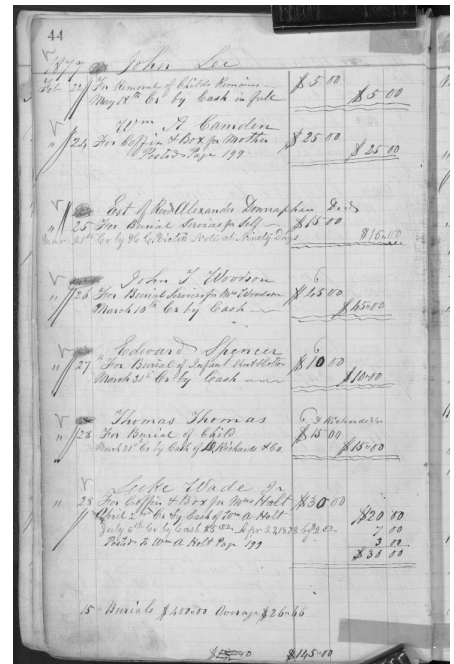 44
1877 John Lee
Feb 22 For Removal of Childs Remains $5 00
May 18th Cr by Cash in full $5 00
Wm A Camden
" 24 For Coffin & Box for Mother $25 00
Posted Page 199 $25 00
Est of Revd Alexander Decd
" 25 For Burial Services for Self $15 00
Cr by Note at Ninety Days
John T Woodson
" 26 For Burial Services for Mrs Woodson $45 00
March 10th Cr by Cash $45 00
Edward Spencer
" 27 For Burial of Infant $10 00
March 31st Cr by Cash $10 00
Thomas Thomas
" 28 For Burial of Child $15 00
March 31st Cr by Cash of D. Richards & Co. $15 00
Luke Wade Jr
" 28 For Coffin & Box for Mrs Holt $30 00
April 2nd Cr by Cash of Wm A Holt $20 00
July 5th Cr by Cash $5.00 Apr 22 1878 7 00
Posted to Wm A Holt Page 199 3 00
$30 00
15 Burials $400 00 Average $26 66
$145 00